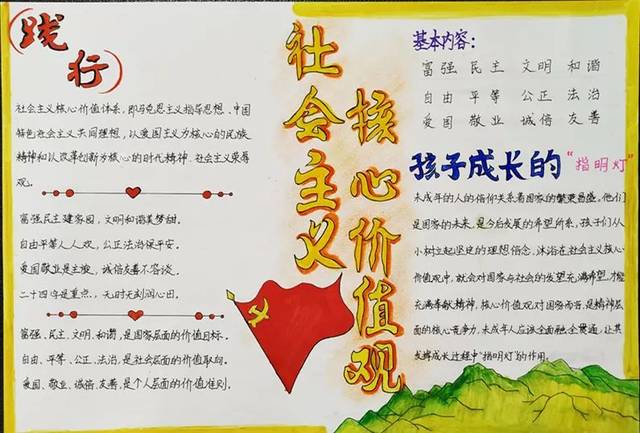 践行
社会主义核心价值体系，即马克思主义指导思想、中国
特色社会主义共同理想，以爱国主义为核心的民族
精神和以改革创新为核心的时代精神、社会主义荣辱
观。
富强民主建家园，文明和谐美梦甜。
自由平等人人欢，公正法治保平安。
爱国敬业是主旋，诚信友善不容谈。
二十四字是重点，无时无刻润心田。
富强、民主、文明、和谐，是国家层面的价值目标。
自由、平等、公正、法治，是社会层面的价值取向。
爱国、敬业、诚信、友善，是个人层面的价值准则。
社会主义
核心价值观
基本内容：
富强 民主 文明 和谐
自由 平等 公正 法治
爱国 敬业 诚信 友善
孩子成长的"指明灯"
未成年的人的信仰关系着国家的繁更易盛。他们
是国家的未来，是今后发展的希望所系，孩子们从
小树立起坚定的理想信念，沐浴在社会主义核心
价值观中，就会对国家与社会的发望充满希望，才能
充满奉献精神，核心价值观对国家而言，是精神层
面的核心竞争力，未成年人应该全面融会贯通，让其
发挥成长过程中"指明灯"的作用。